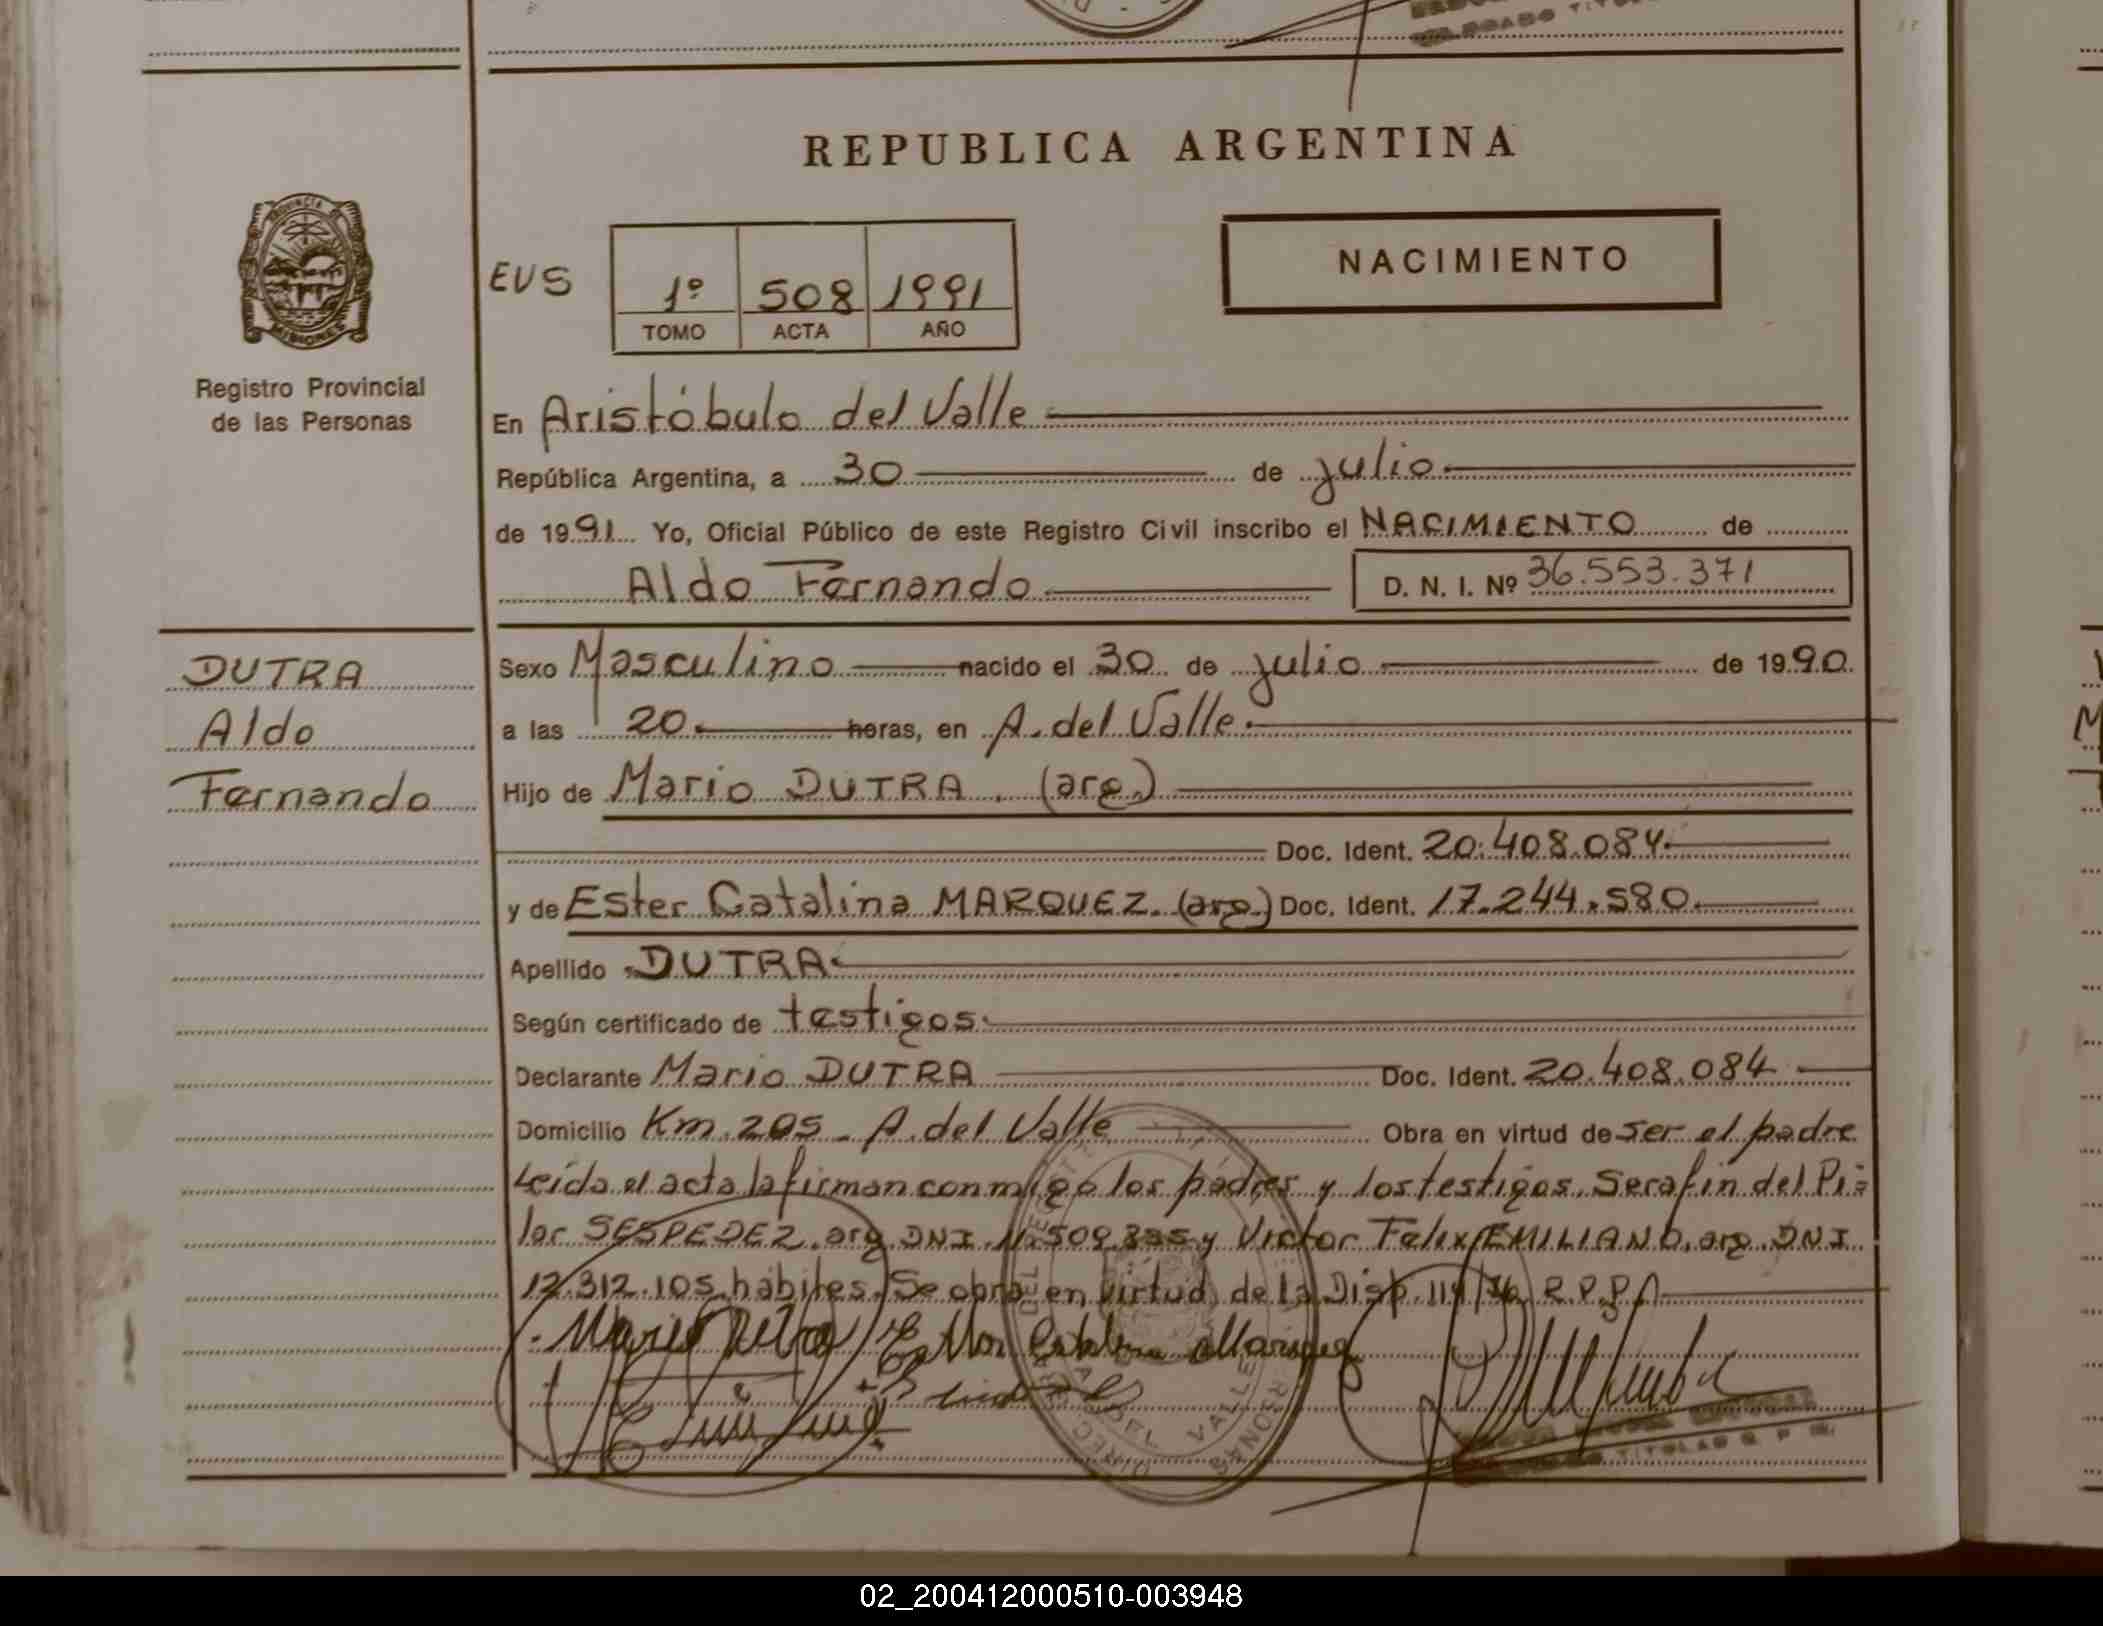 REPUBLICA ARGENTINA
PROVINCIA DE
MISIONES
Registro Provincial
de las Personas
EUS
1º 508 1991
TOMO ACTA AÑO
NACIMIENTO
En Aristóbulo del Valle
República Argentina, a 30 de julio
de 1991 Yo, Oficial Público de este Registro Civil inscribo el NACIMIENTO de
Aldo Fernando D. N. I. Nº 36.553.371
DUTRA
Aldo
Fernando
Sexo Masculino nacido el 30 de julio de 1990
a las 20 horas, en A. del Valle
Hijo de Mario DUTRA. (arg.)
Doc. Ident. 20.408.084
y de Ester Catalina MARQUEZ. (arg.) Doc. Ident. 17.244.580
Apellido DUTRA
Según certificado de testigos
Declarante Mario DUTRA Doc. Ident. 20.408.084
Domicilio Km. 205 - A. del Valle Obra en virtud de ser el padre
Leída el acta la firman conmigo los padres y los testigos. Serafin del Pi=
lar SESPEDEZ. arg. DNI y Victor Felix EMILIANO. arg. DNI
12.312.105. hábiles. Se obra en virtud de la Disp. R.P.P.
Ester Catalina Marquez
DEL VALLE
02_200412000510-003948